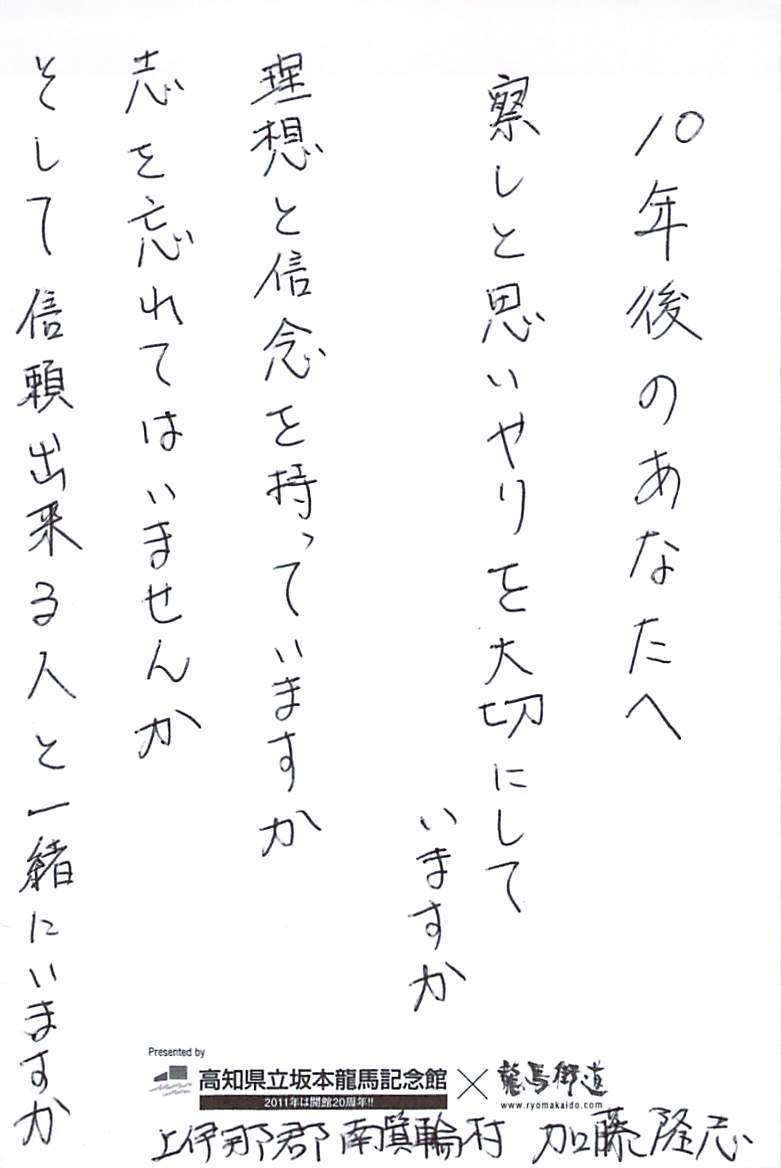 10年後のあなたへ
察しと思いやりを大切にして
いますか
理想と信念を持っていますか
志を忘れてはいませんか
そして信頼出来る人と一緒にいますか
Presented by
高知県立坂本龍馬記念館
2011年は開館20周年!!
×
龍馬街道
www.ryomakaido.com
上伊那郡南箕輪村 加藤隆志